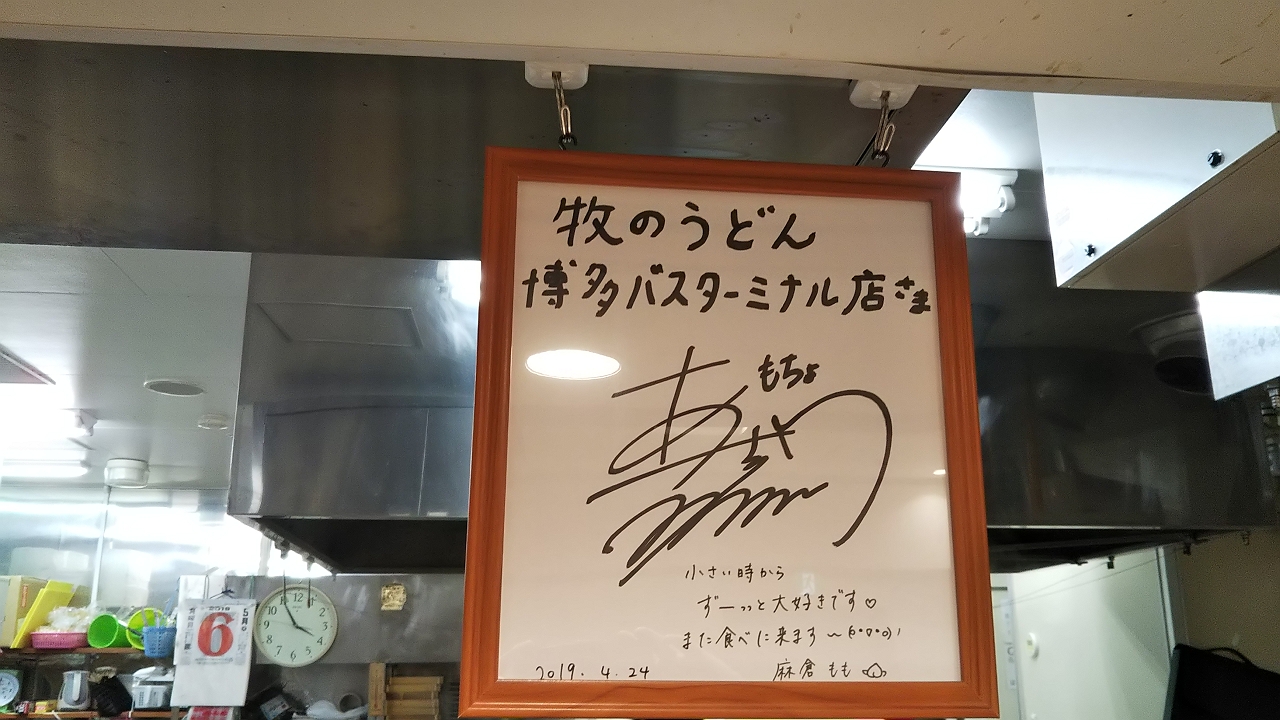 牧のうどん
博多バスターミナル店さま
もちょ
小さい時から
ずーっっと大好きです♡
また食べに来ます～
2019. 4. 24
麻倉 もも
2019
5月
6